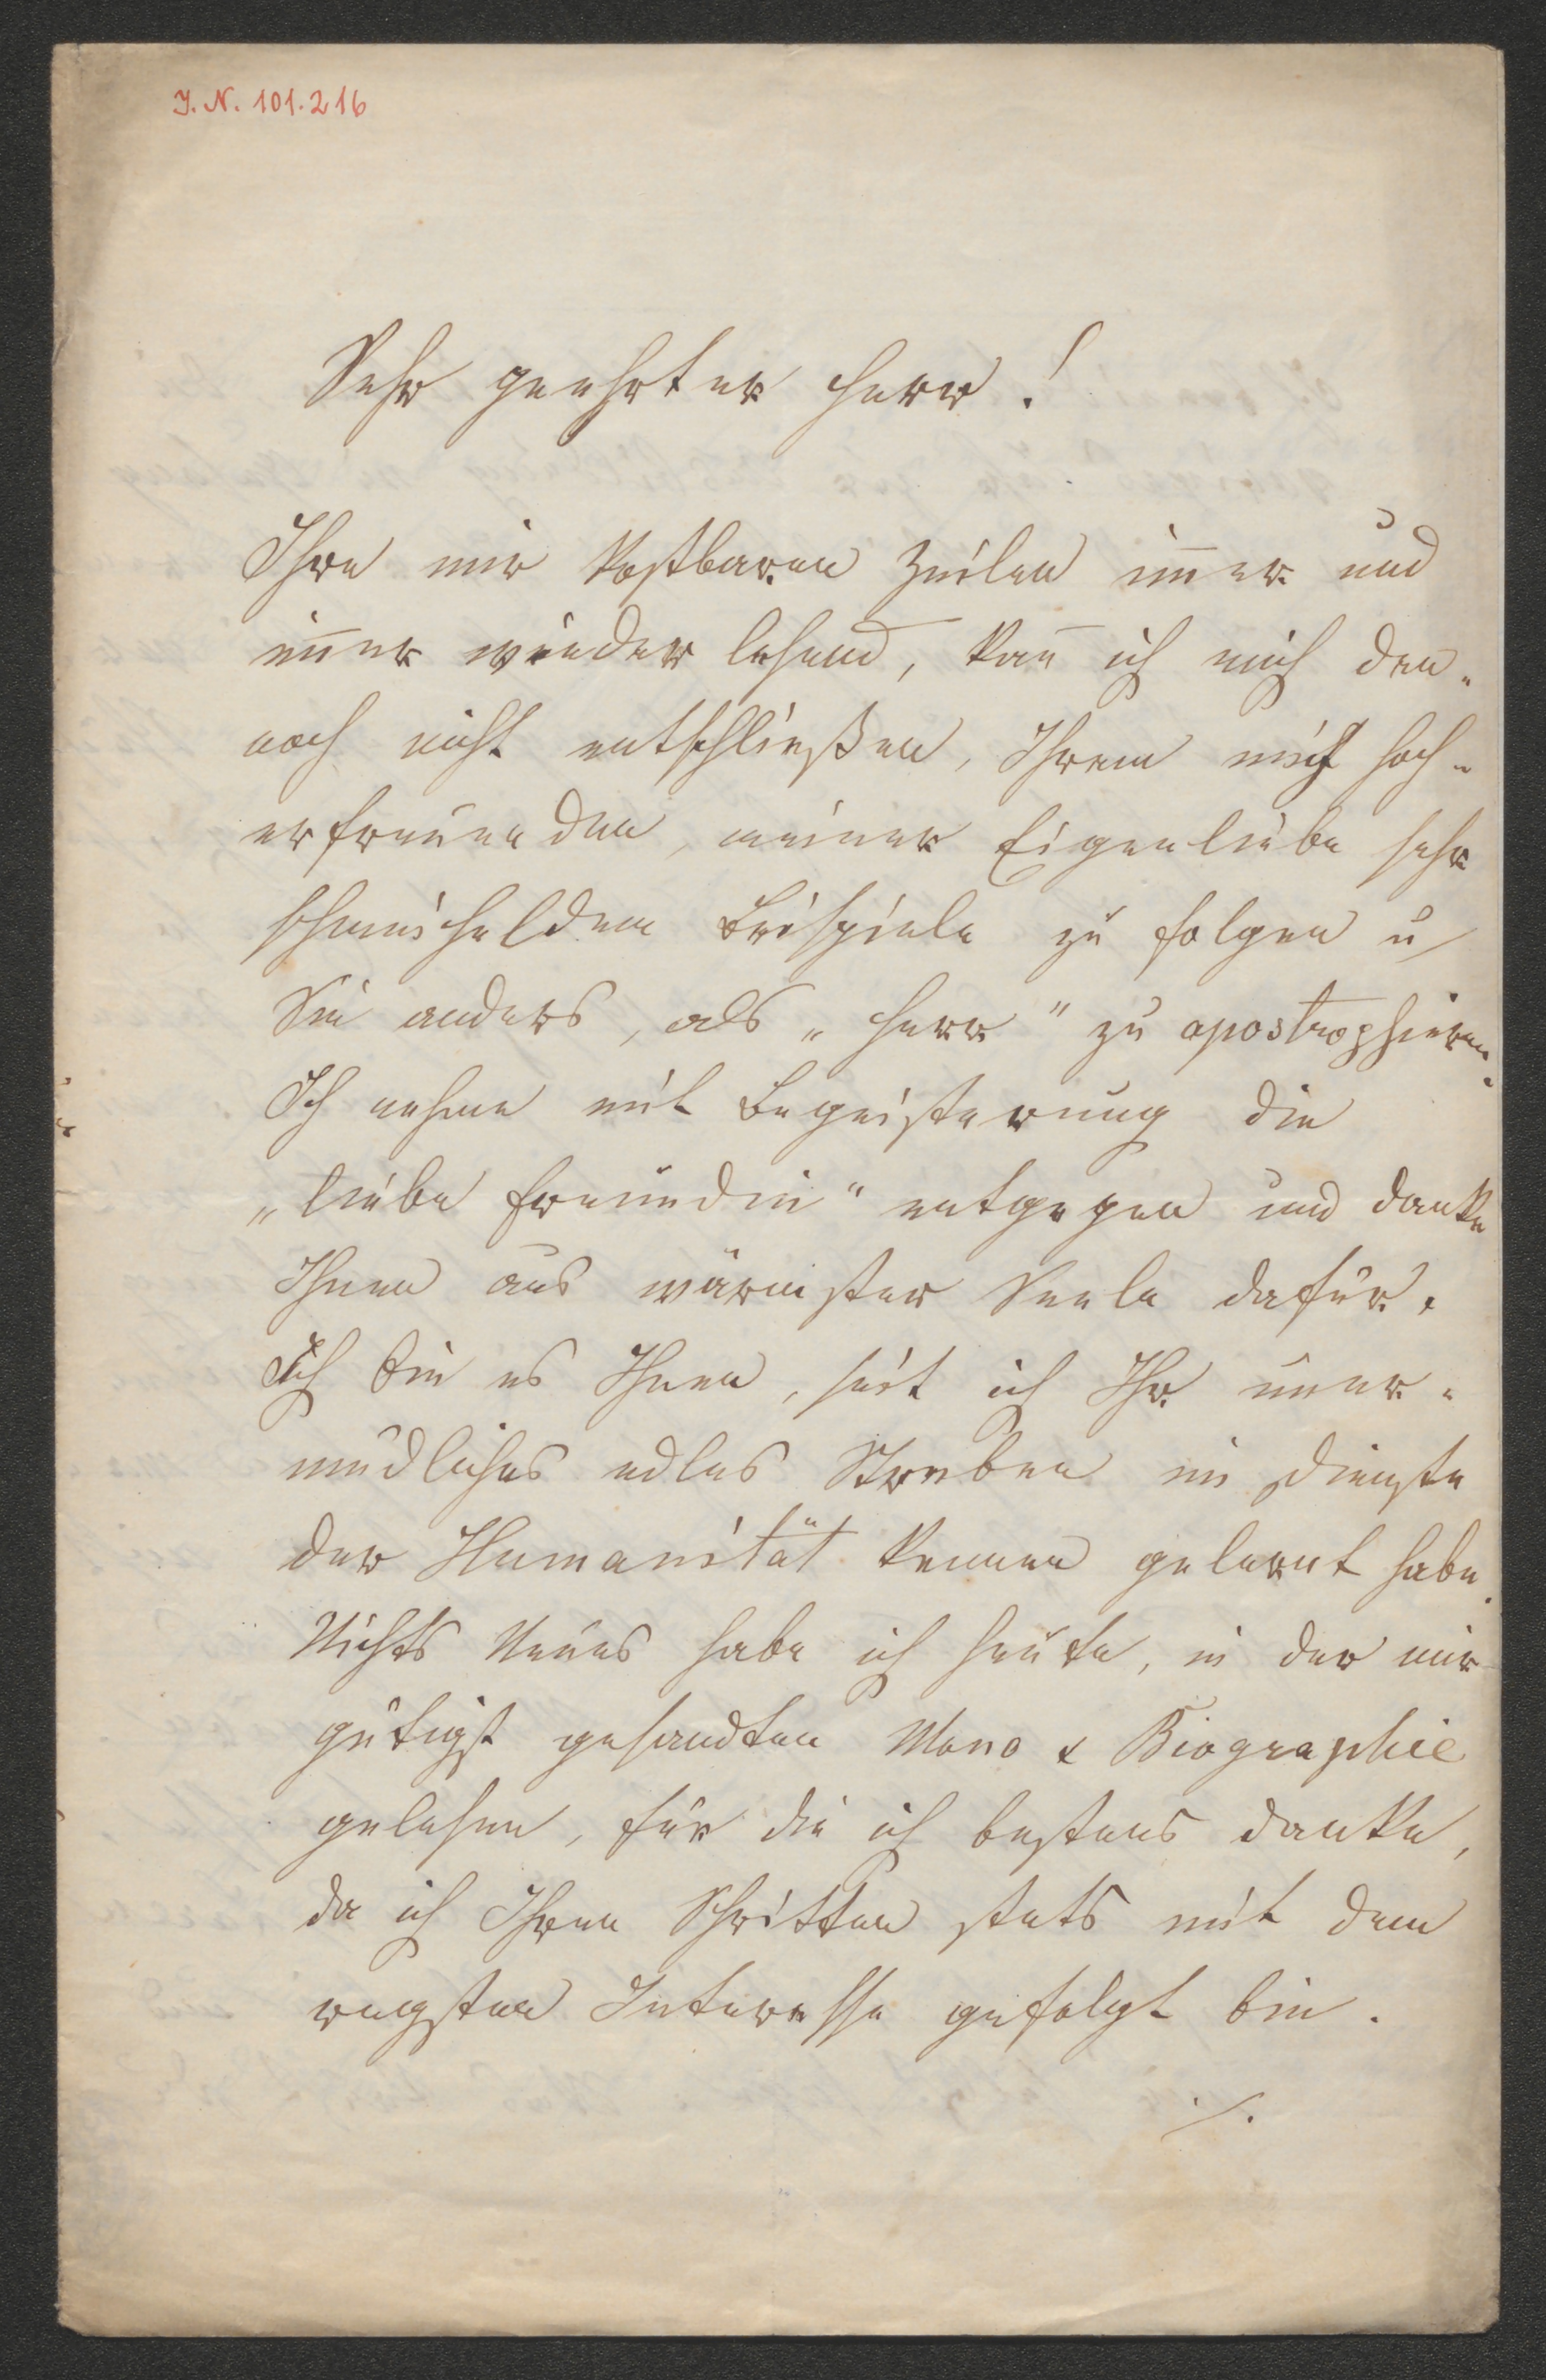 J. N. 101.216
Sehr geehrter Herr!
Ihre mir kostbaren Zeilen im̄er und
im̄er wieder lesend, kan̄ ich mich den-
noch nicht entschließen, Ihrem mich hoch-
erfreuenden, meiner Eigenliebe sehr
schmeichelden Beispiele zu folgen u
Sie anders, als „Herr" zu apostrophieren.
Ich nehme mit Begeisterung die
„liebe Freundin" entgegen und danke
Ihnen aus wärmster Seele dafür.
Ich bin es Ihnen, seit ich Ihr uner-
müdliches edles Streben im Dienste
der Humanität kennen gelernt habe.
Nichts Neues habe ich heute, in der mir
gütigst gesandten Mono & Biographie
gelesen, für die ich bestens danke,
da ich Ihren Schritten stets mit dem
regsten Interesse gefolgt bin.
./.